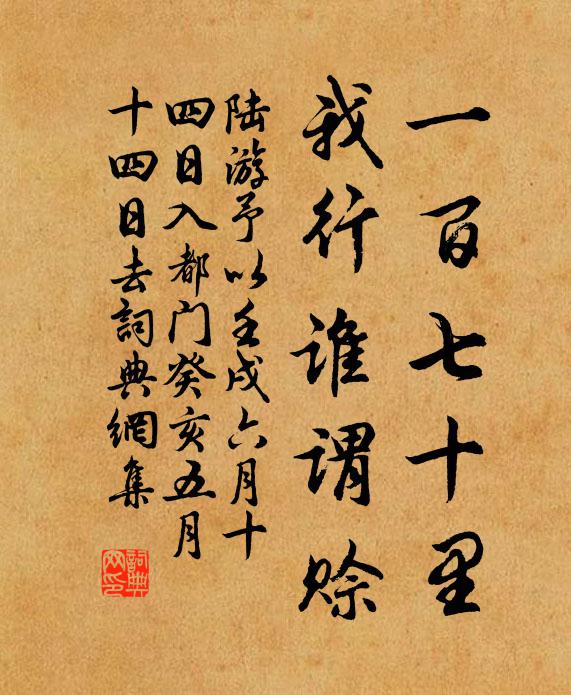 一百七十里
我行谁谓赊
陆游予以壬戌六月十
四日入都门癸亥五月
十四日去詞典網集
詞典
网印